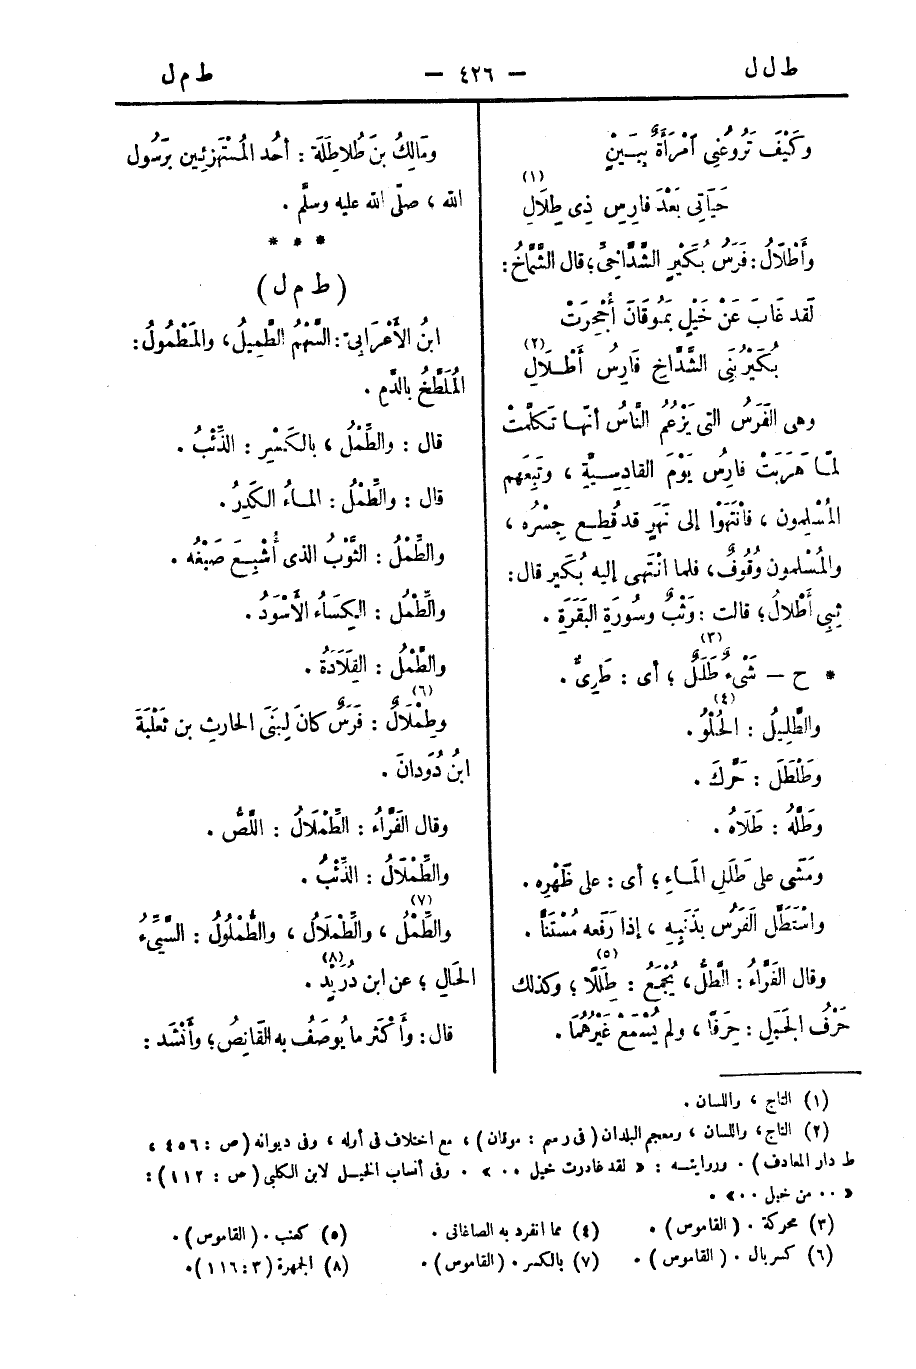 ط ل ل
— ٤٢٦ —
ط م ل
وَكَيْفَ تَرُوعُنِى آمْرَأَةٌ بِبَيْنٍ
حَيَاتِى بَعْدَ فارِسِ ذِى طِلَالِ (١)
وأَطْلَالُ: فَرَسُ بُكَيْرٍ الشَّدَّاخِىِّ؛ قال الشَّمَّاخُ:
لَقد غابَ عَنْ خَيْلٍ بَمُوقَانَ أُحْجِرَتْ
بُكَيْرُ بَنِى الشَّدَّاخِ فَارِسُ أَطْلَالِ (٢)
وهى الفَرَسُ التى يَزْعُم النَّاسُ أنّها تَكلَّمتْ
لمّا هَرَبَتْ فارِسُ يَوْمَ القادِسِيَّةِ ، وتَبِعَهم
المُسْلِمون ، فانْتَهَوْا إلى نَهَرٍ قد قُطِع جِسْرُه ،
والمُسْلمون وُقُوفٌ، فلما انْتَهى إليه بُكَير قال:
ثِبِى أَطْلالُ؛ قالت : وَثْبٌ وسُورَةِ البَقَرَةِ .
* ح — شَىْءٌ طَلَلٌ (٣) ؛ أى : طَرِىٌّ .
والطَّلِيلُ (٤) : الحُلْوُ .
وطَلْطَلَ : حَرَّكَ .
وطَلَّهُ : طَلَاهُ .
ومَشَى على طَلَلِ المَاءِ ؛ أى : على ظَهْرِه .
واسْتَطَلَّ الفَرَسُ بذَنَبِه ، إذا رَفَعه مُسْتَنًّا .
وقال الفَرَّاءُ : الطَّلُّ، يُجْمَعُ : طِلَلًا (٥) ؛ وكذلك
حَرْفُ الجَبَلِ : حِرَفًا ، ولم يُسْمَعْ غَيْرُهُمَا .
ومَالِكُ بنُ طُلاطِلَةَ : أحُد المُسْتَهزِئين بِرَسُول
الله ، صلّى الله عليه وسلَّم .
* * *
( ط م ل )
ابنُ الأَعْرَابِىّ : السَّهْمُ الطَّمِيلُ، والمَطْمُولُ :
المُلَطَّخُ بالدَّمِ .
قال : والطِّمْلُ ، بالكَسْرِ : الذِّئْبُ .
قال : والطِّمْلُ : الماءُ الكَدِرُ .
والطِّمْلُ : الثَّوْبُ الذى أُشْبِعَ صَبْغُه .
والطِّمْلُ : الكِسَاءُ الأَسْوَدُ .
والطِّمْلُ : القِلَادَةُ .
وطِمْلَالٌ (٦) : فَرَسٌ كانَ لِبَنَى الحارثِ بن ثَعْلَبَةَ
ابنُ دُودانَ .
وقال الفَرَّاءُ : الطِّمْلَالُ : اللَّصُّ .
والطِّمْلَالُ : الذِّئْبُ .
والطِّمْلُ (٧) ، والطِّمْلَالُ ، والطُّمْلُولُ : السَّيِّىءُ
الحَالِ ؛ عن ابن دُرَيْدٍ (٨) .
قال : وأَكْثَر ما يُوصَفُ به القَانِصُ ؛ وأَنْشَد :
(١) التاج ، واللسان .
(٢) التاج، واللسان ، ومعجم البلدان ( فى رسم : موقان ) ، مع اختلاف فى أوله ، وفى ديوانه ( ص : ٤٥٦ ،
ط دار المعارف ) . وروايتـه : « لقد غادرت خيل .. » . وفى أنساب الخيـل لابن الكلبى ( ص : ١١٢ ) :
« .. من خيل .. » .
(٣) محركة . ( القاموس ) .
(٤) مما انفرد به الصاغانى .
(٥) كعنب . ( القاموس ) .
(٦) كسربال . ( القاموس ) .
(٧) بالكسر . ( القاموس ) .
(٨) الجمهرة ( ٣ : ١١٦ ) .